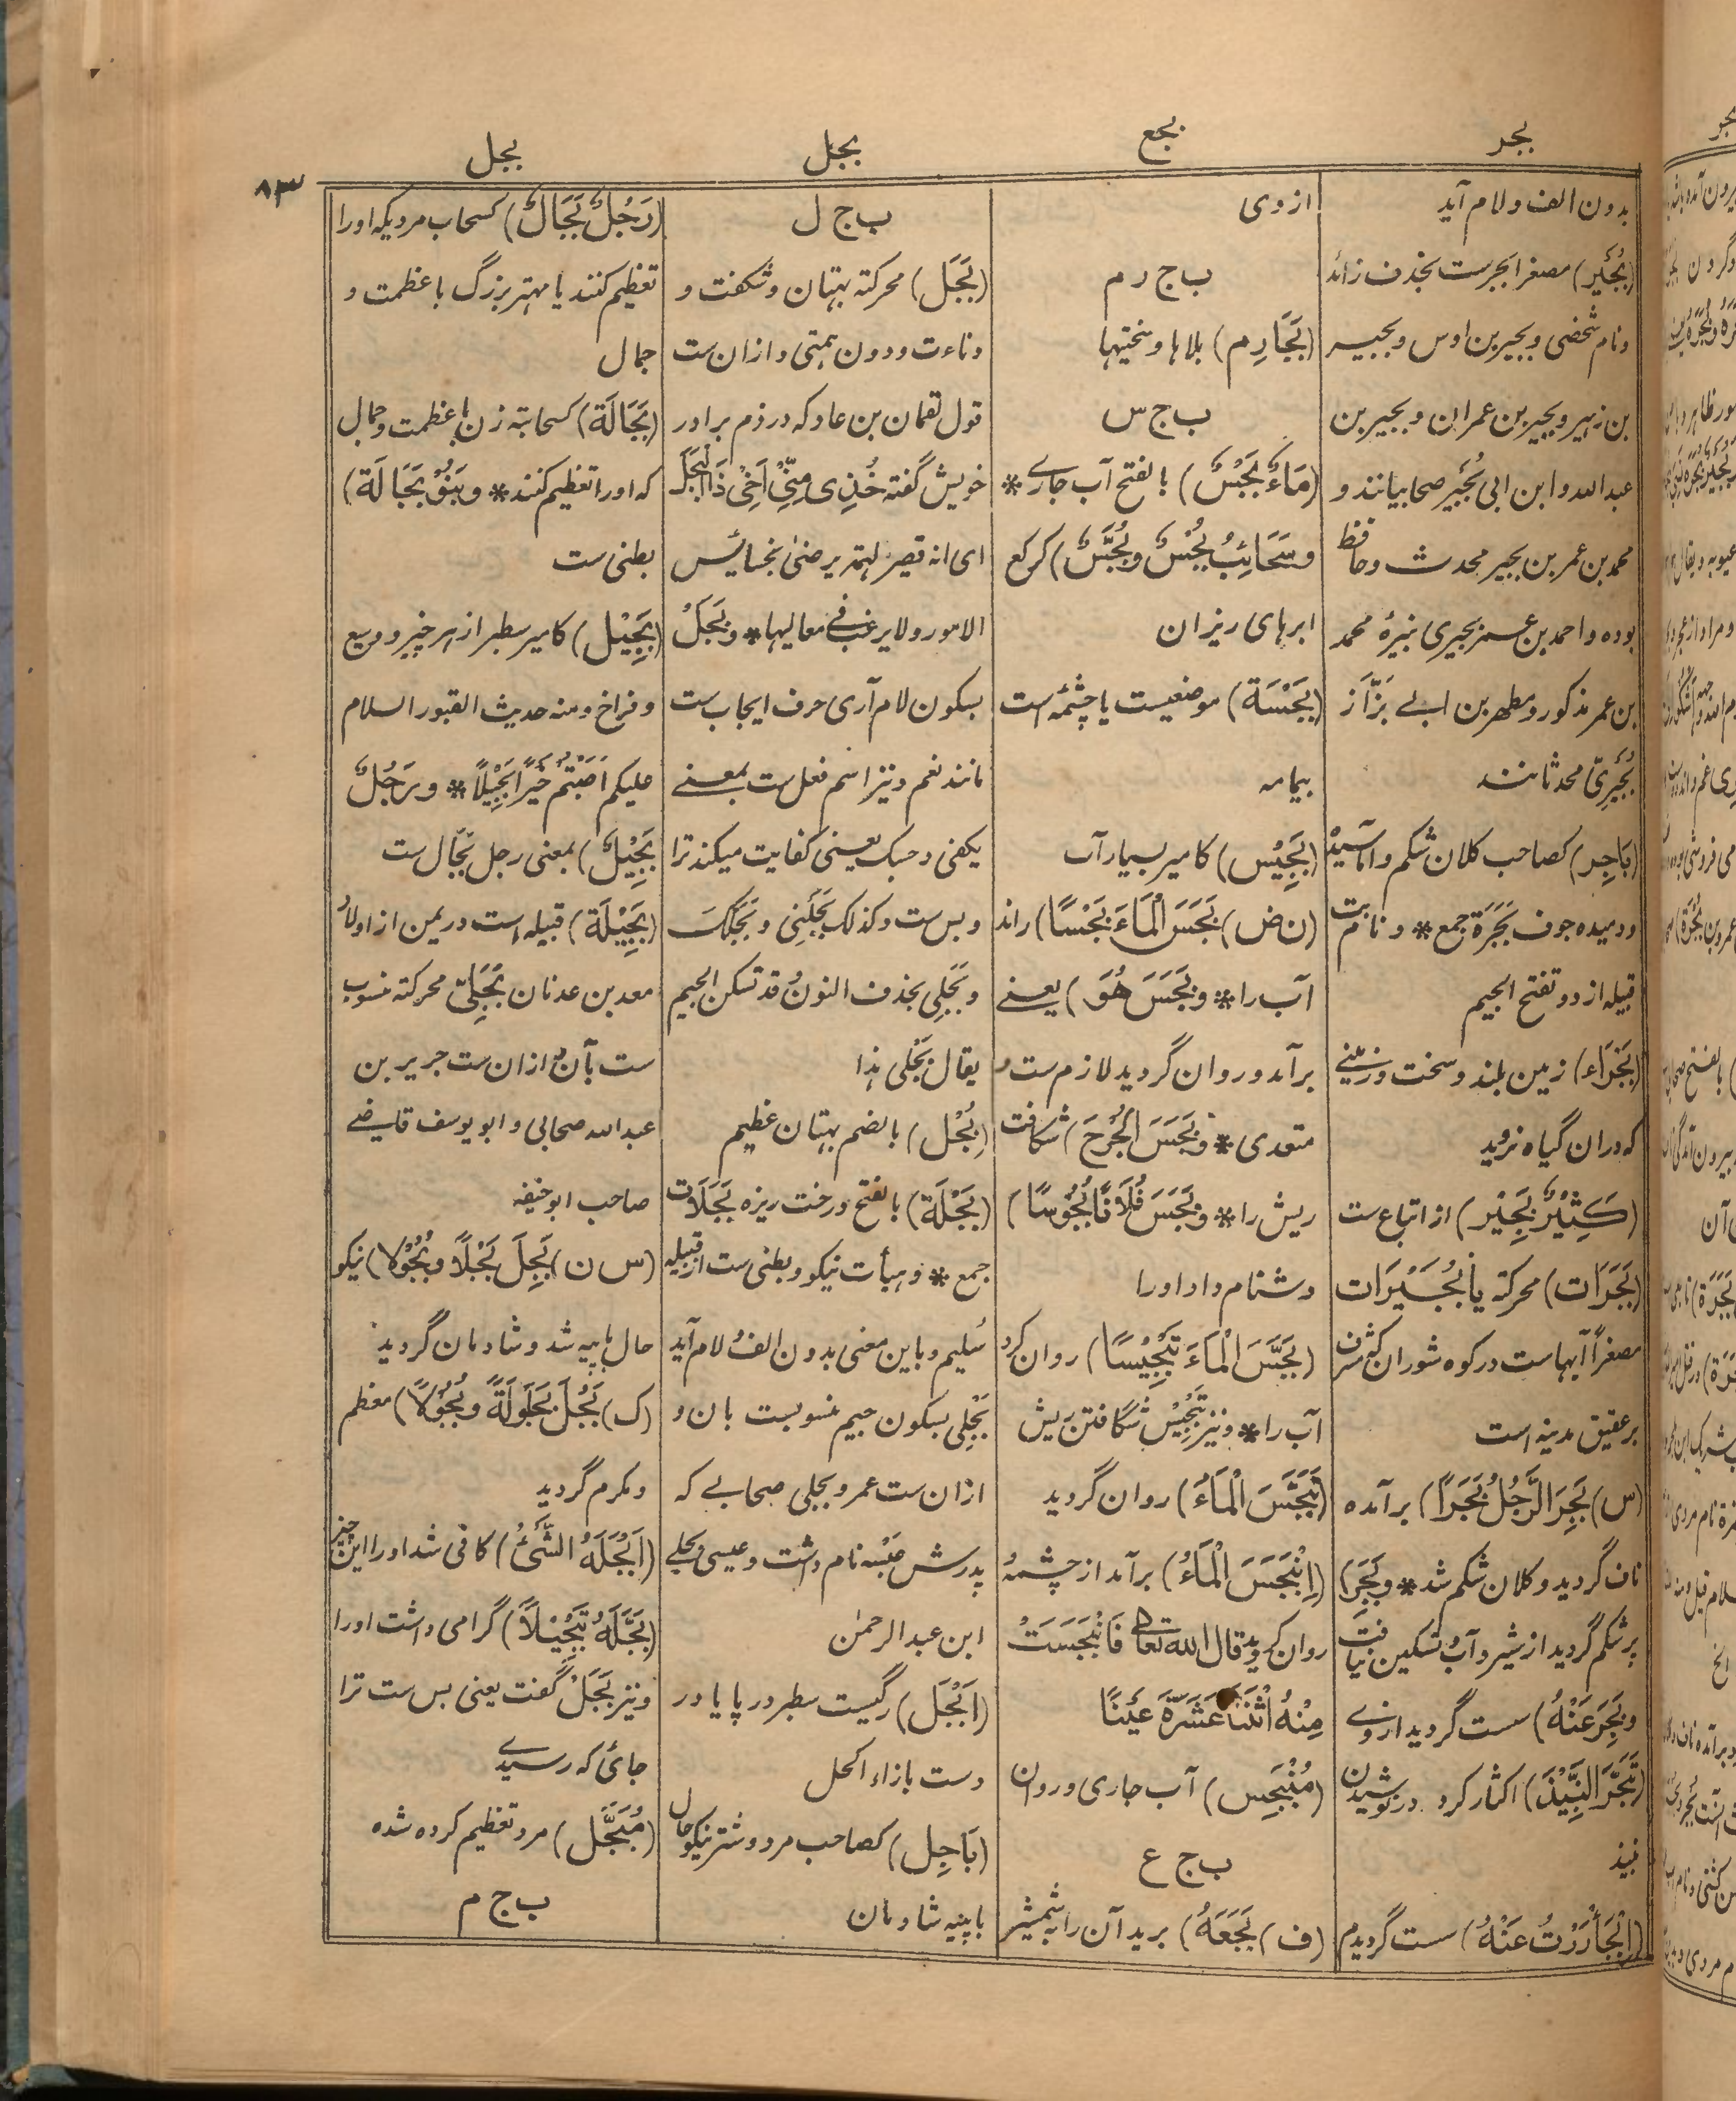 بجر
بجع
بجل
بجل
۸۳
بدون الف و لام آید
(بُجَیْر) مصغر ابجرست بحذف زائد
و نام شخصی و بجیر بن اوس و بجیر
بن زہیر و بجیر بن عمران و بجیر بن
عبد اللہ و ابن ابی بُجَیْر صحابیانند و
محمد بن عمر بن بجیر محدث و حافظ
بودہ و احمد بن عمر بجیری نبیرۂ محمد
بن عمر مذکور و مطہر بن ابے بَزّاز
بُجَیْرِیّ محدثانند
(بَاجِر) کصاحب کلان شکم و آماسیدہ
و دمیدہ جوف بَجَرَة جمع * و نام بت
قبیلہ ازد و تفتح الجیم
(بَجْرَاء) زمین بلند و سخت و زمینے
کہ دران گیاہ نروید
(کَثِیْرٌ بَجِیْر) از اتباع ست
(بَجَرَات) محرکة یا بُجَیْرَات
مصغراً آبہاست در کوہ شوران کہ مشرف
بر عقیق مدینہ است
(س) بَجِرَ الرَّجُلُ بَجَرًا) برآمدہ
ناف گردید و کلان شکم شد * وبَجِرَ)
پر شکم گردید از شیر و آب و تسکین نیافت
و بَجِرَ عَنْهُ) سست گردید از وے
(تَبَجَّرَ النَّبِیْذَ) اکثار کرد در نوشیدن
نبیذ
(اِبْجَأْرَرْتُ عَنْهُ) سست گردیدم
از وی
ب ج ر م
(بَجَارِم) بلاہا و سختیہا
ب ج س
(مَاءٌ بَجْسٌ) بالفتح آب جارے *
و سَحَائِبُ بُجْسٌ و بُجَّسٌ) کرکع
ابرہای ریزان
(بَجْسَة) موضعیست یا چشمہ است
بیمامہ
(بَجِیْس) کامیر بسیار آب
(ن ض) بَجَسَ الْمَاءَ بَجْسًا) راند
آب را * و بَجَسَ هُوَ) یعنے
برآمد و روان گردید لازم ست و
متعدی * و بَجَسَ الْجُرْحَ) شکافت
ریش را * و بَجَسَ فُلَانًا بُجُوْسًا)
دشنام داد او را
(بَجَّسَ الْمَاءَ تَبْجِیْسًا) روان کرد
آب را * و نیز تَبْجِیْس شگافتن ریش
(تَبَجَّسَ الْمَاءُ) روان گردید
(اِنْبَجَسَ الْمَاءُ) برآمد از چشمہ
روان گردید و قال اللہ تعالی فَانْبَجَسَتْ
مِنْهُ اثْنَتَا عَشَرَةَ عَیْنًا
(مُنْبَجِس) آب جاری و روان
ب ج ع
(ف) بَجَعَهُ) برید آن را بشمشیر
ب ج ل
(بَجَل) محرکة بہتان و شگفت و
دناءت و دون ہمتی و ازان ست
قول لقمان بن عاد کہ در ذم برادر
خویش گفتہ خُذِی مِنِّیْ اَخِیْ ذَا الْبَجَل
ای انہ قصیر الہمة یرضیٰ بخسائس
الامور و لا یرغب فی معالیہا * و بَجَلْ
بسکون لام آری حرف ایجاب ست
مانند نعم و نیز اسم فعل ست بمعنے
یکفی و حسبک یعنی کفایت میکند ترا
و بس ست و کذلک بَجَلَنِی و بَجَلَکَ
و بَجَلِی بحذف النون و قد تسکن الجیم
یقال بَجْلی ہذا
(بُجْل) بالضم بہتان عظیم
(بَجْلَة) بالفتح درخت ریزہ بَجَلَات
جمع * و ہیأت نیکو و بطنی ست از قبیلہ
سُلیم و باین معنی بدون الف و لام آید
بَجْلِی بسکون جیم منسوبست بان و
ازان ست عمرو بجلی صحابے کہ
پدرش عَبْسہ نام داشت و عیسی بجلے
ابن عبد الرحمٰن
(اَبْجَل) رگیست سطبر در پا یا در
دست بازاء اکحل
(بَاجِل) کصاحب مرد و شتر نیکو حال
با پیہ شادمان
(رَجُلٌ بَجَالٌ) کسحاب مردیکہ او را
تعظیم کنند یا مہتر بزرگ با عظمت و
جمال
(بَجَالَة) کسحابة زن باعظمت و جمال
کہ او را تعظیم کنند * و بَنُوْ بَجَالَة)
بطنی ست
(بَجِیْل) کامیر سطبر از ہر چیز و وسیع
و فراخ و منہ حدیث القبور السلام
علیکم اَصَبْتُمْ خَیْرًا بَجِیْلًا * و رَجُلٌ
بَجِیْلٌ) بمعنی رجل بَجَال ست
(بَجِیْلَة) قبیلہ است در یمن از اولاد
معد بن عدنان بَجَلِیّ محرکة منسوب
ست بآن و ازان ست جریر بن
عبد اللہ صحابی و ابو یوسف قاضے
صاحب ابو حنیفہ
(س ن) بَجِلَ بَجْلًا و بُجُوْلًا) نیکو
حال با پیہ شد و شادمان گردید
(ک) بَجُلَ بَجَالَةً و بُجُوْلًا) معظم
و مکرم گردید
(اَبْجَلَهُ الشَّیْءُ) کافی شد او را این چیز
(بَجَّلَهُ تَبْجِیْلًا) گرامی داشت او را
و نیز بَجَلْ گفت یعنی بس ست ترا
جائی کہ رسیدے
(مُبَجَّل) مرد تعظیم کردہ شدہ
ب ج م